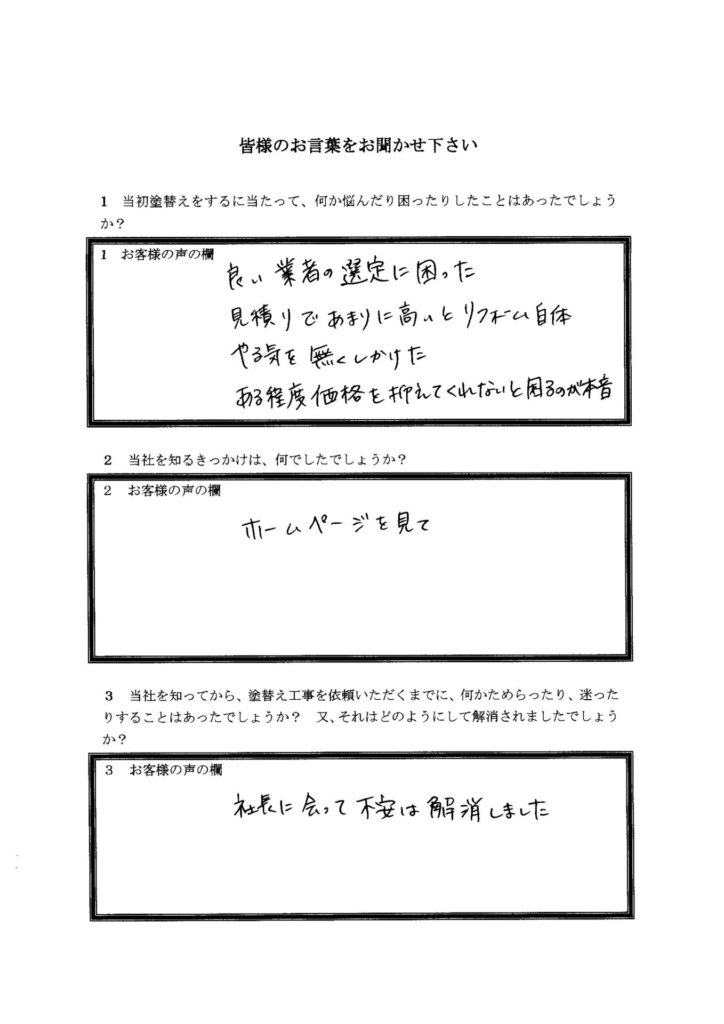 皆様のお言葉をお聞かせ下さい
1 当初塗替えをするに当たって、何か悩んだり困ったりしたことはあったでしょう
か?
1 お客様の声の欄
良い業者の選定に困った
見積りであまりに高いとリフォーム自体
やる気を無くしかけた
ある程度価格を抑えてくれないと困るのが本音
2 当社を知るきっかけは、何でしたでしょうか?
2 お客様の声の欄
ホームページを見て
3 当社を知ってから、塗替え工事を依頼いただくまでに、何かためらったり、迷った
りすることはあったでしょうか? 又、それはどのようにして解消されましたでしょう
か?
3 お客様の声の欄
社長に会って不安は解消しました